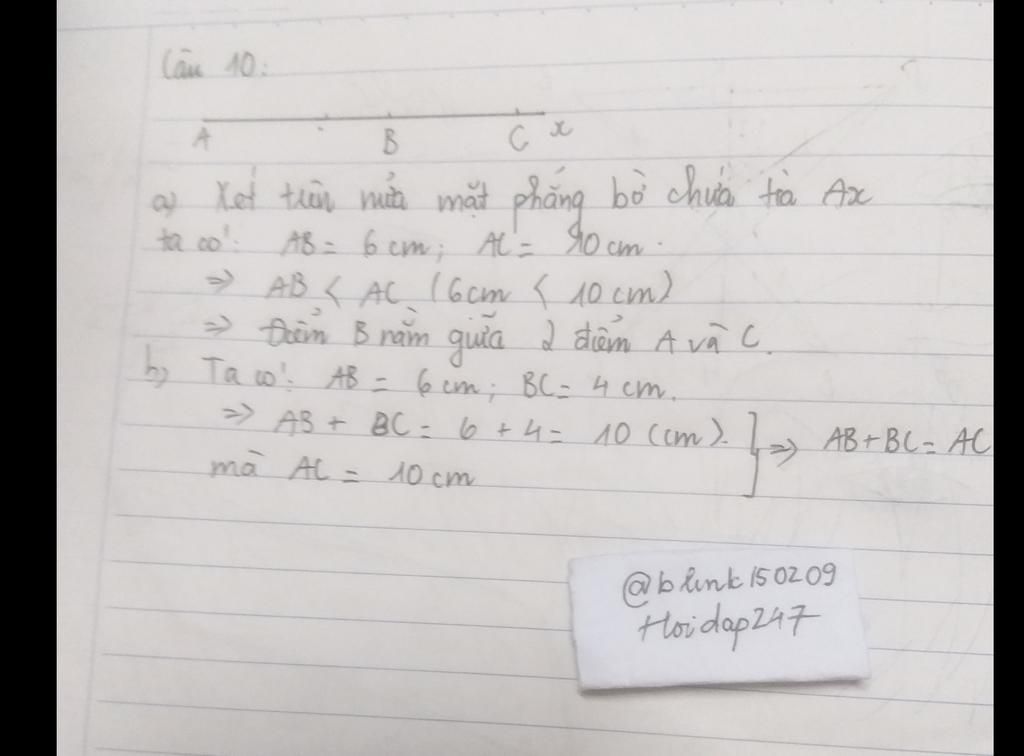 Câu 10:
A B C x
a) Xét trên nửa mặt phẳng bờ chứa tia Ax
ta có: AB = 6 cm; AC = 10 cm.
=> AB < AC (6cm < 10 cm)
=> Điểm B nằm giữa 2 điểm A và C.
b) Ta có: AB = 6 cm; BC = 4 cm.
=> AB + BC = 6 + 4 = 10 (cm). } => AB + BC = AC
mà AC = 10 cm
@blink150209
Hoidap247